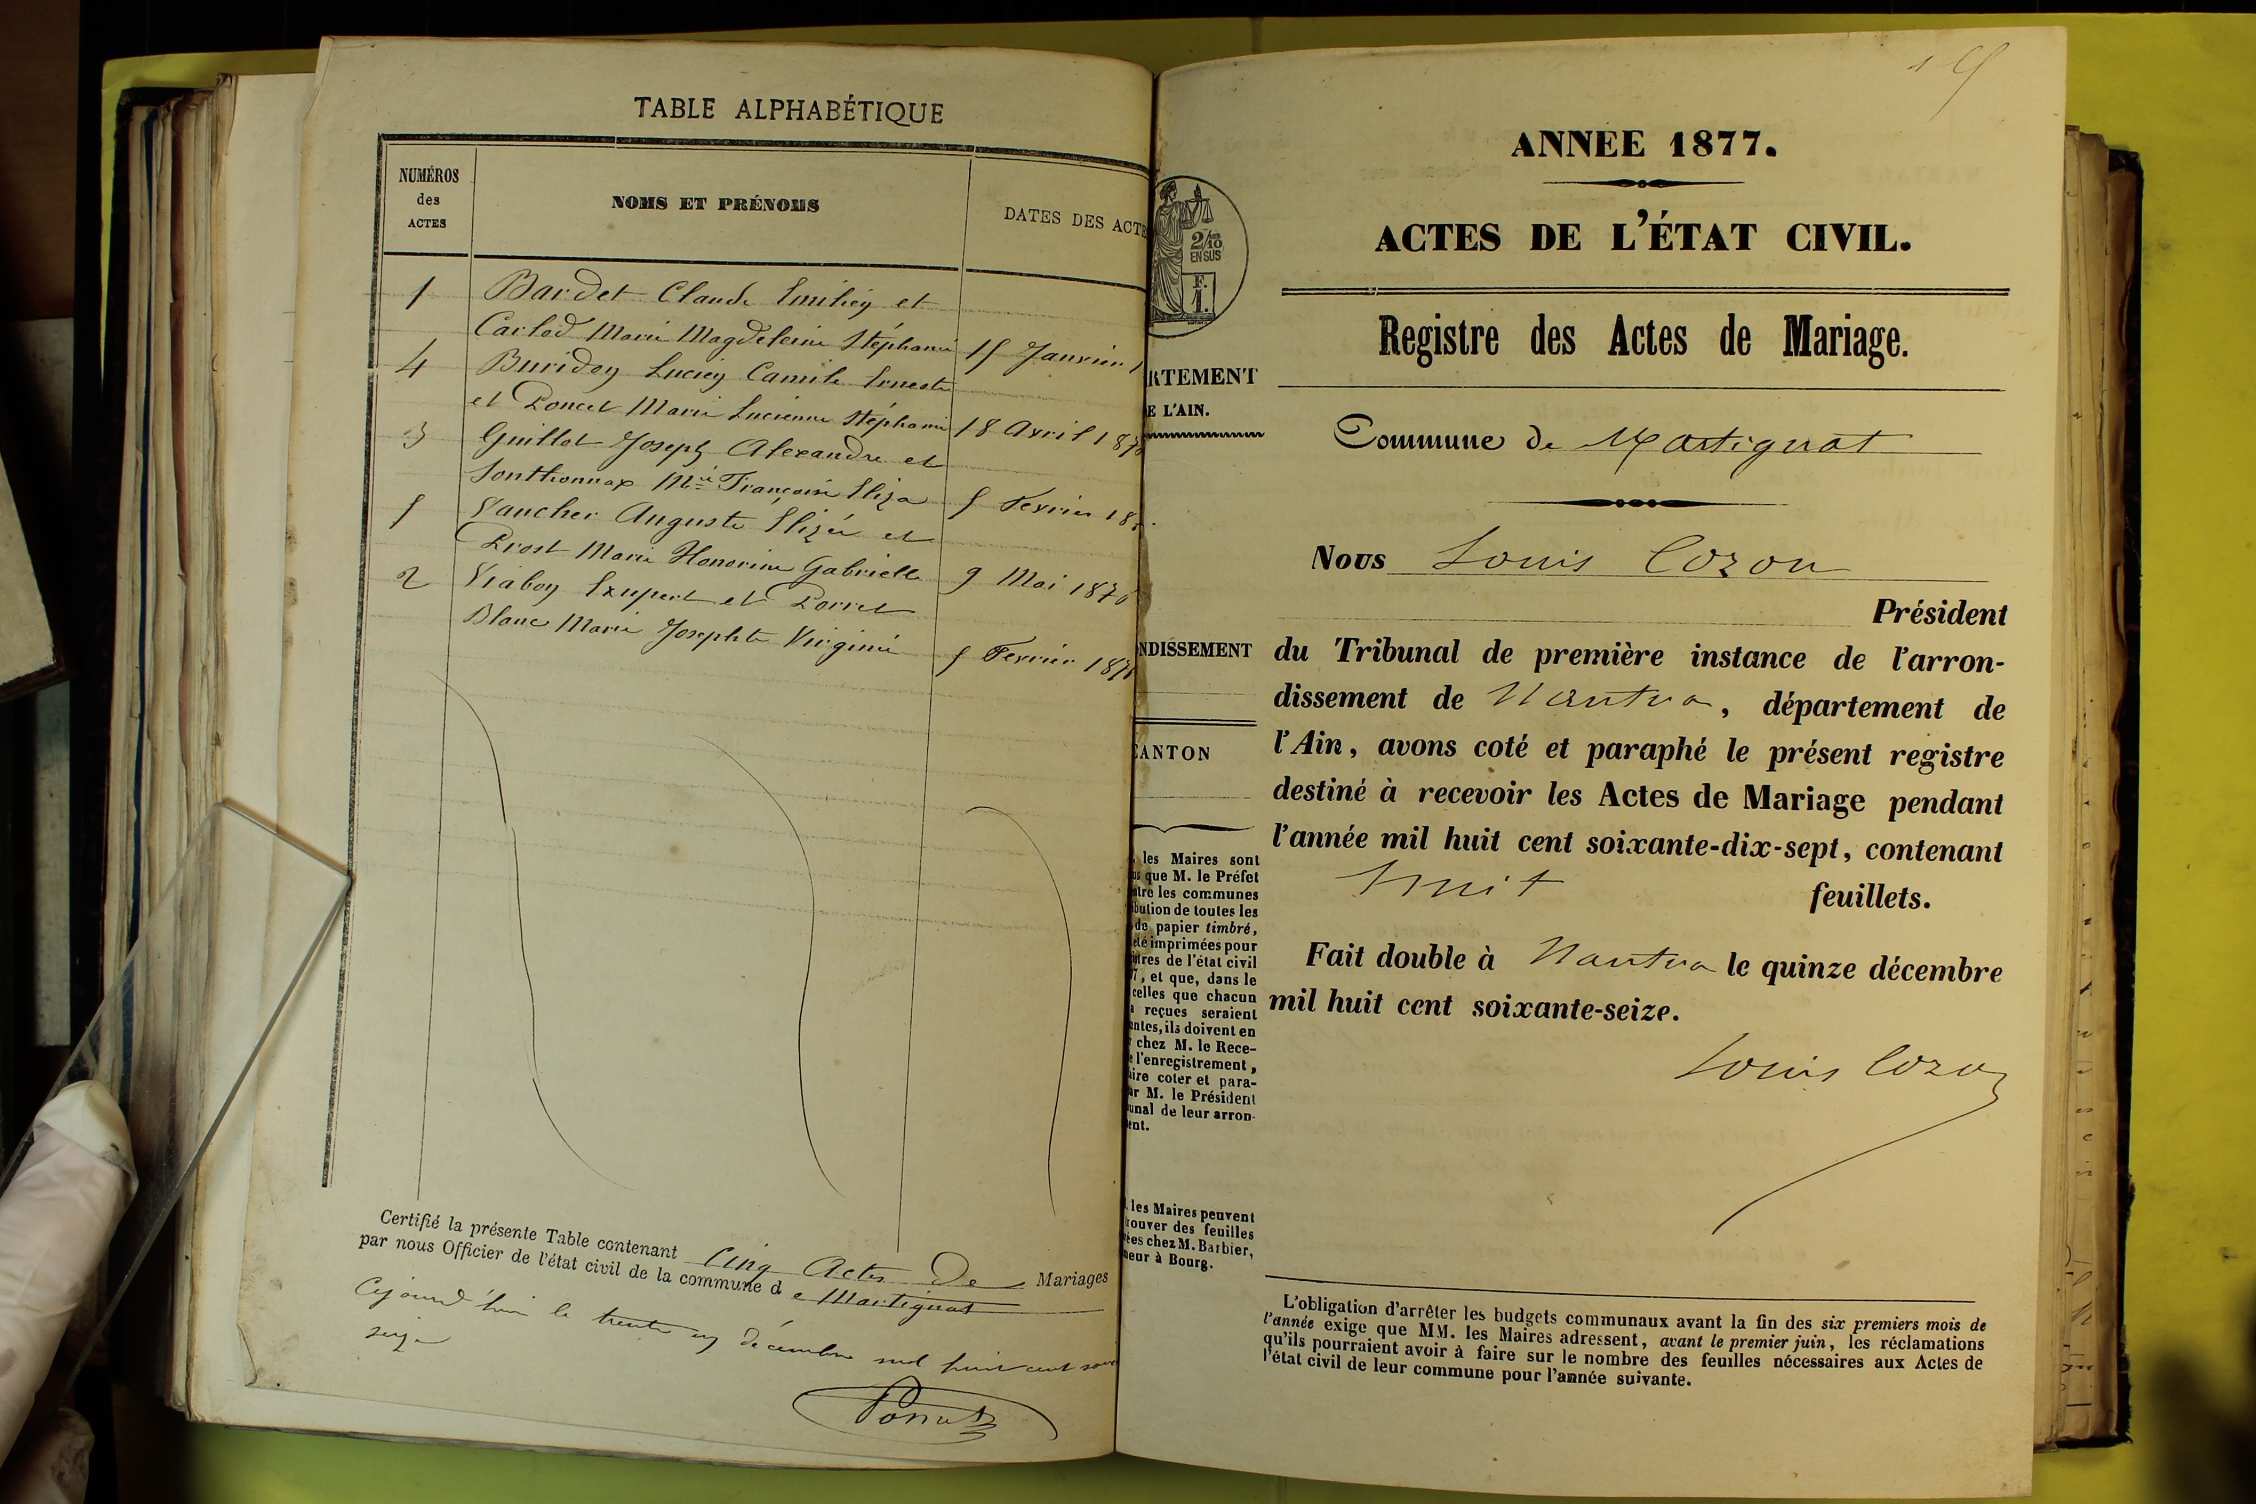 TABLE ALPHABÉTIQUE
NUMÉROS
des
ACTES
NOMS ET PRÉNOMS
DATES DES ACTE
1 Bardet Claude Emilien et
Carlod Marie Magdeleine Stéphanie 15 Janvier 1
4 Buridon Lucien Camile Erneste
et Poncet Marie Lucienne Stéphanie 18 Avril 1876
3 Guillot Joseph Alexandre et
Sonthonnax Mie Françoise Eliza 5 Fevrier 18
5 Vaucher Auguste Elizée et
Prost Marie Honorine Gabrielle 9 Mai 1876
2 Viabon Exupert et Porret
Blanc Marie Josephte Virginie 5 Fevrier 1876
Certifié la présente Table contenant Cinq Actes De Mariages
par nous Officier de l'état civil de la commune d e Martignat
Cejourd'hui le trente un décembre mil huit cent
seize
15
ANNÉE 1877.
ACTES DE L'ÉTAT CIVIL.
Registre des Actes de Mariage.
2/10
EN SUS
F.
1.
RTEMENT
E L'AIN.
Commune de Martignat
Nous Louis Cozon
Président
du Tribunal de première instance de l'arron-
dissement de Nantua, département de
l'Ain, avons coté et paraphé le présent registre
destiné à recevoir les Actes de Mariage pendant
l'année mil huit cent soixante-dix-sept, contenant
huit feuillets.
Fait double à Nantua le quinze décembre
mil huit cent soixante-seize.
Louis Cozon
NDISSEMENT
CANTON
les Maires sont
que M. le Préfet
tre les communes
bution de toutes les
de papier timbré,
été imprimées pour
tres de l'état civil
7, et que, dans le
celles que chacun
a reçues seraient
ntes, ils doivent en
chez M. le Rece-
e l'enregistrement,
aire coter et para-
ar M. le Président
unal de leur arron-
ent.
les Maires peuvent
rouver des feuilles
ées chez M. Barbier,
meur à Bourg.
L'obligation d'arrêter les budgets communaux avant la fin des six premiers mois de
l'année exige que MM. les Maires adressent, avant le premier juin, les réclamations
qu'ils pourraient avoir à faire sur le nombre des feuilles nécessaires aux Actes de
l'état civil de leur commune pour l'année suivante.